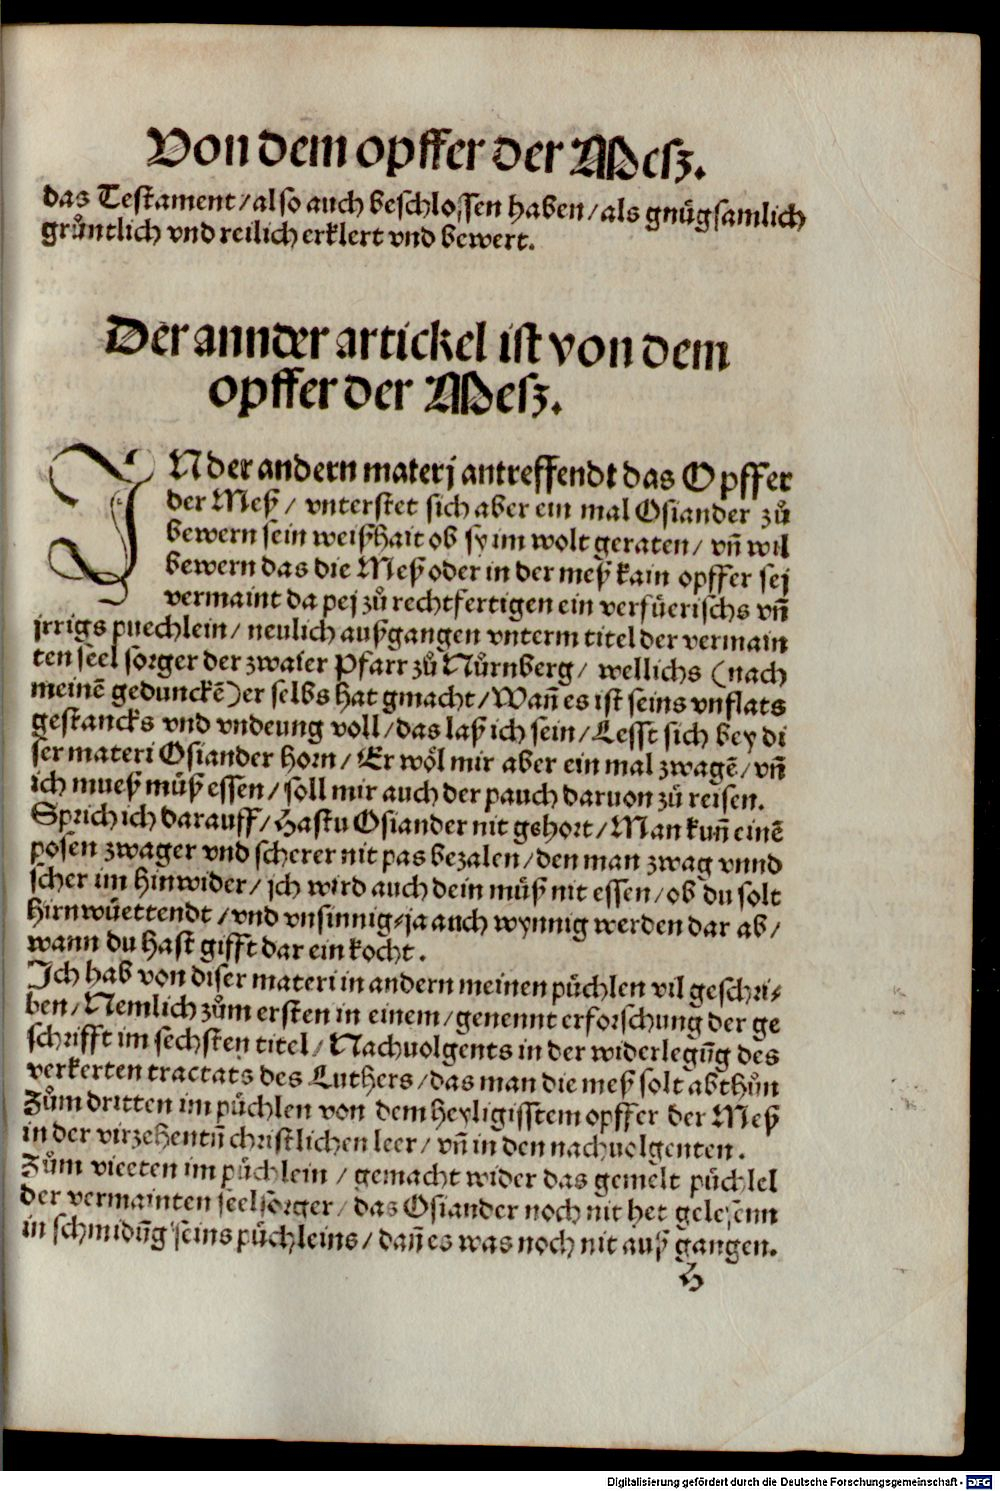 Von dem opffer der Mesz.
das Testament/also auch beschlossen haben/als gnügsamlich
grůntlich vnd reilich erklert vnd bewert.
Der annder artickel ist von dem
opffer der Mesz.
IN der andern materj antreffendt das Opffer
der Meß / vnterstet sich aber ein mal Osiander zů
bewern sein weißhait ob sy im wolt geraten/ vñ wil
bewern das die Meß oder in der meß kain opffer sej
vermaint da pej zů rechtfertigen ein verfüerischs vñ
jrrigs puechlein/ neulich außgangen vnterm titel der vermain
ten seel sorger der zwaier Pfarr zů Nůrnberg/ wellichs (nach
meinē gedunckē) er selbs hat gmacht/Wañ es ist seins vnflats
gestancks vnd vndeung voll/das laß ich sein/Lesst sich bey di
ser materi Osiander horn/ Er wöl mir aber ein mal zwagē/ vñ
ich mueß müß essen/soll mir auch der pauch daruon zů reisen.
Sprich ich darauff/Hastu Osiander nit gehort/Man kuñ einē
posen zwager vnd scherer nit pas bezalen/den man zwag vnnd
scher im hinwider/ jch wird auch dein müß nit essen/ob du solt
hirnwüettendt/vnd vnsinnig⸗ja auch wynnig werden dar ab/
wann du hast gifft dar ein kocht.
Ich hab von diser materi in andern meinen püchlen vil geschri⸗
ben/Nemlich zům ersten in einem/genennt erforschung der ge
schrifft im sechsten titel/Nachuolgents in der widerlegūg des
verkerten tractats des Luthers/das man die meß solt abthůn
Zům dritten im püchlen von dem heyligisstem opffer der Meß
in der virzehentñ christlichen leer/ vñ in den nachuolgenten.
Zům vieeten im püchlein / gemacht wider das gemelt püchlel
der vermainten seelsorger/das Osiander noch nit het gelesenn
in schmidūg seins püchleins/dañ es was noch nit auß gangen.
H
Digitalisierung gefördert durch die Deutsche Forschungsgemeinschaft - DFG